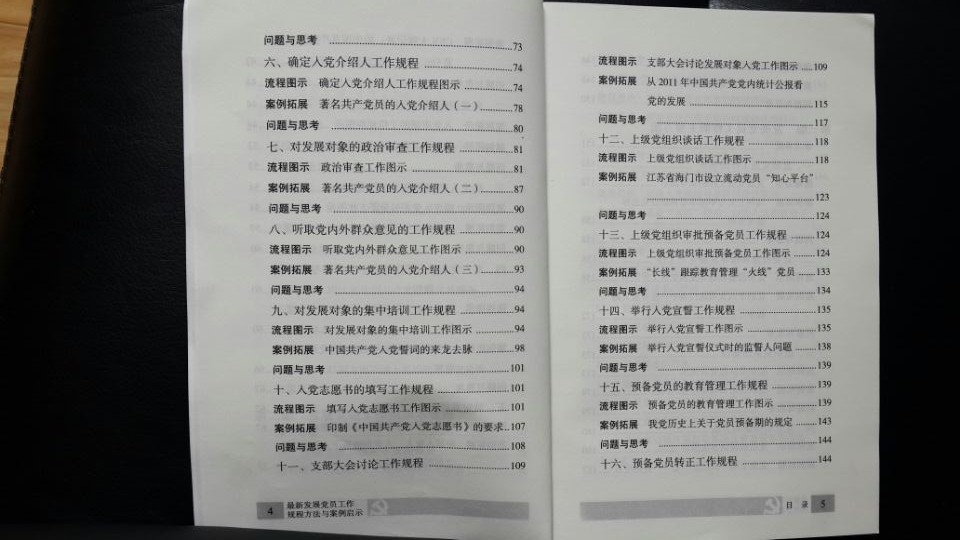 问题与思考 ……73
六、确定入党介绍人工作规程 ……74
流程图示 确定入党介绍人工作规程图示 ……74
案例拓展 著名共产党员的入党介绍人（一）……78
问题与思考 ……80
七、对发展对象的政治审查工作规程 ……81
流程图示 政治审查工作图示 ……81
案例拓展 著名共产党员的入党介绍人（二）……87
问题与思考 ……90
八、听取党内外群众意见的工作规程 ……90
流程图示 听取党内外群众意见工作图示 ……90
案例拓展 著名共产党员的入党介绍人（三）……93
问题与思考 ……94
九、对发展对象的集中培训工作规程 ……94
流程图示 对发展对象的集中培训工作图示 ……94
案例拓展 中国共产党入党誓词的来龙去脉 ……98
问题与思考 ……101
十、入党志愿书的填写工作规程 ……101
流程图示 填写入党志愿书工作图示 ……101
案例拓展 印制《中国共产党入党志愿书》的要求..107
问题与思考 ……108
十一、支部大会讨论工作规程 ……109
4 最新发展党员工作
规程方法与案例启示
流程图示 支部大会讨论发展对象入党工作图示 ……109
案例拓展 从2011年中国共产党党内统计公报看
党的发展 ……115
问题与思考 ……117
十二、上级党组织谈话工作规程 ……118
流程图示 上级党组织谈话工作图示 ……118
案例拓展 江苏省海门市设立流动党员“知心平台”
……123
问题与思考 ……124
十三、上级党组织审批预备党员工作规程 ……124
流程图示 上级党组织审批预备党员工作图示 ……124
案例拓展 “长线”跟踪教育管理“火线”党员 ……133
问题与思考 ……134
十四、举行入党宣誓工作规程 ……135
流程图示 举行入党宣誓工作图示 ……135
案例拓展 举行入党宣誓仪式时的监誓人问题 ……138
问题与思考 ……139
十五、预备党员的教育管理工作规程 ……139
流程图示 预备党员的教育管理工作图示 ……139
案例拓展 我党历史上关于党员预备期的规定 ……143
问题与思考 ……144
十六、预备党员转正工作规程 ……144
目 录 5